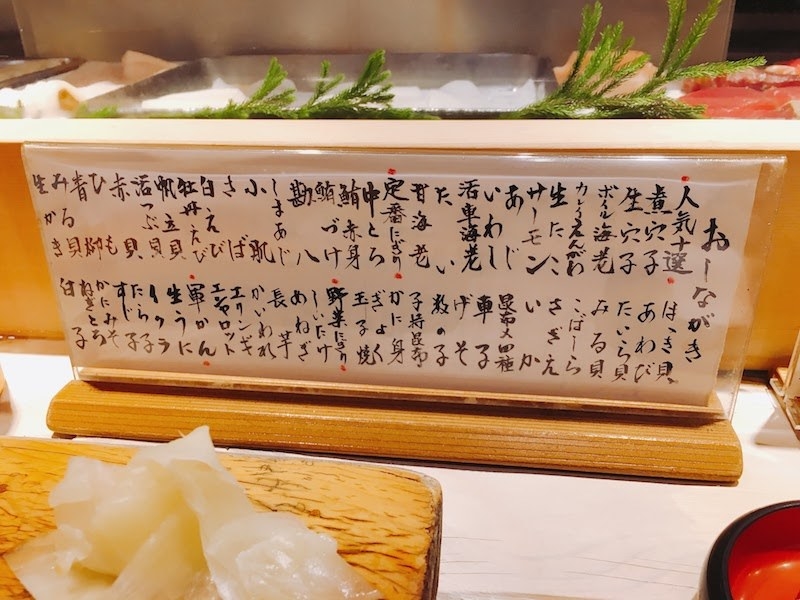 おしながき
人気十選
煮穴子
生穴子
ボイル海老
カレイえんがわ
生たこ
サーモン
あじ
いわし
活車海老
たい
甘海老
定番にぎり
中とろ
鮪赤身
鮪づけ
勘八
しまあじ
小肌
さば
白えび
牡丹えび
帆立貝
活つぶ貝
赤貝
ひも
青柳
みる貝
生かき
ほっき貝
あわび
たいら貝
みる貝
こばしら
さざえ
いか
昆布〆四種
車子
げそ
数の子
子持昆布
かに身
ぎょく
玉子焼
野菜にぎり
しいたけ
あねぎ
長芋
かいわれ
エリンギ
エシャロット
軍かん
生うに
イクラ
たら子
すじ子
かにみそ
ねぎとろ
白子